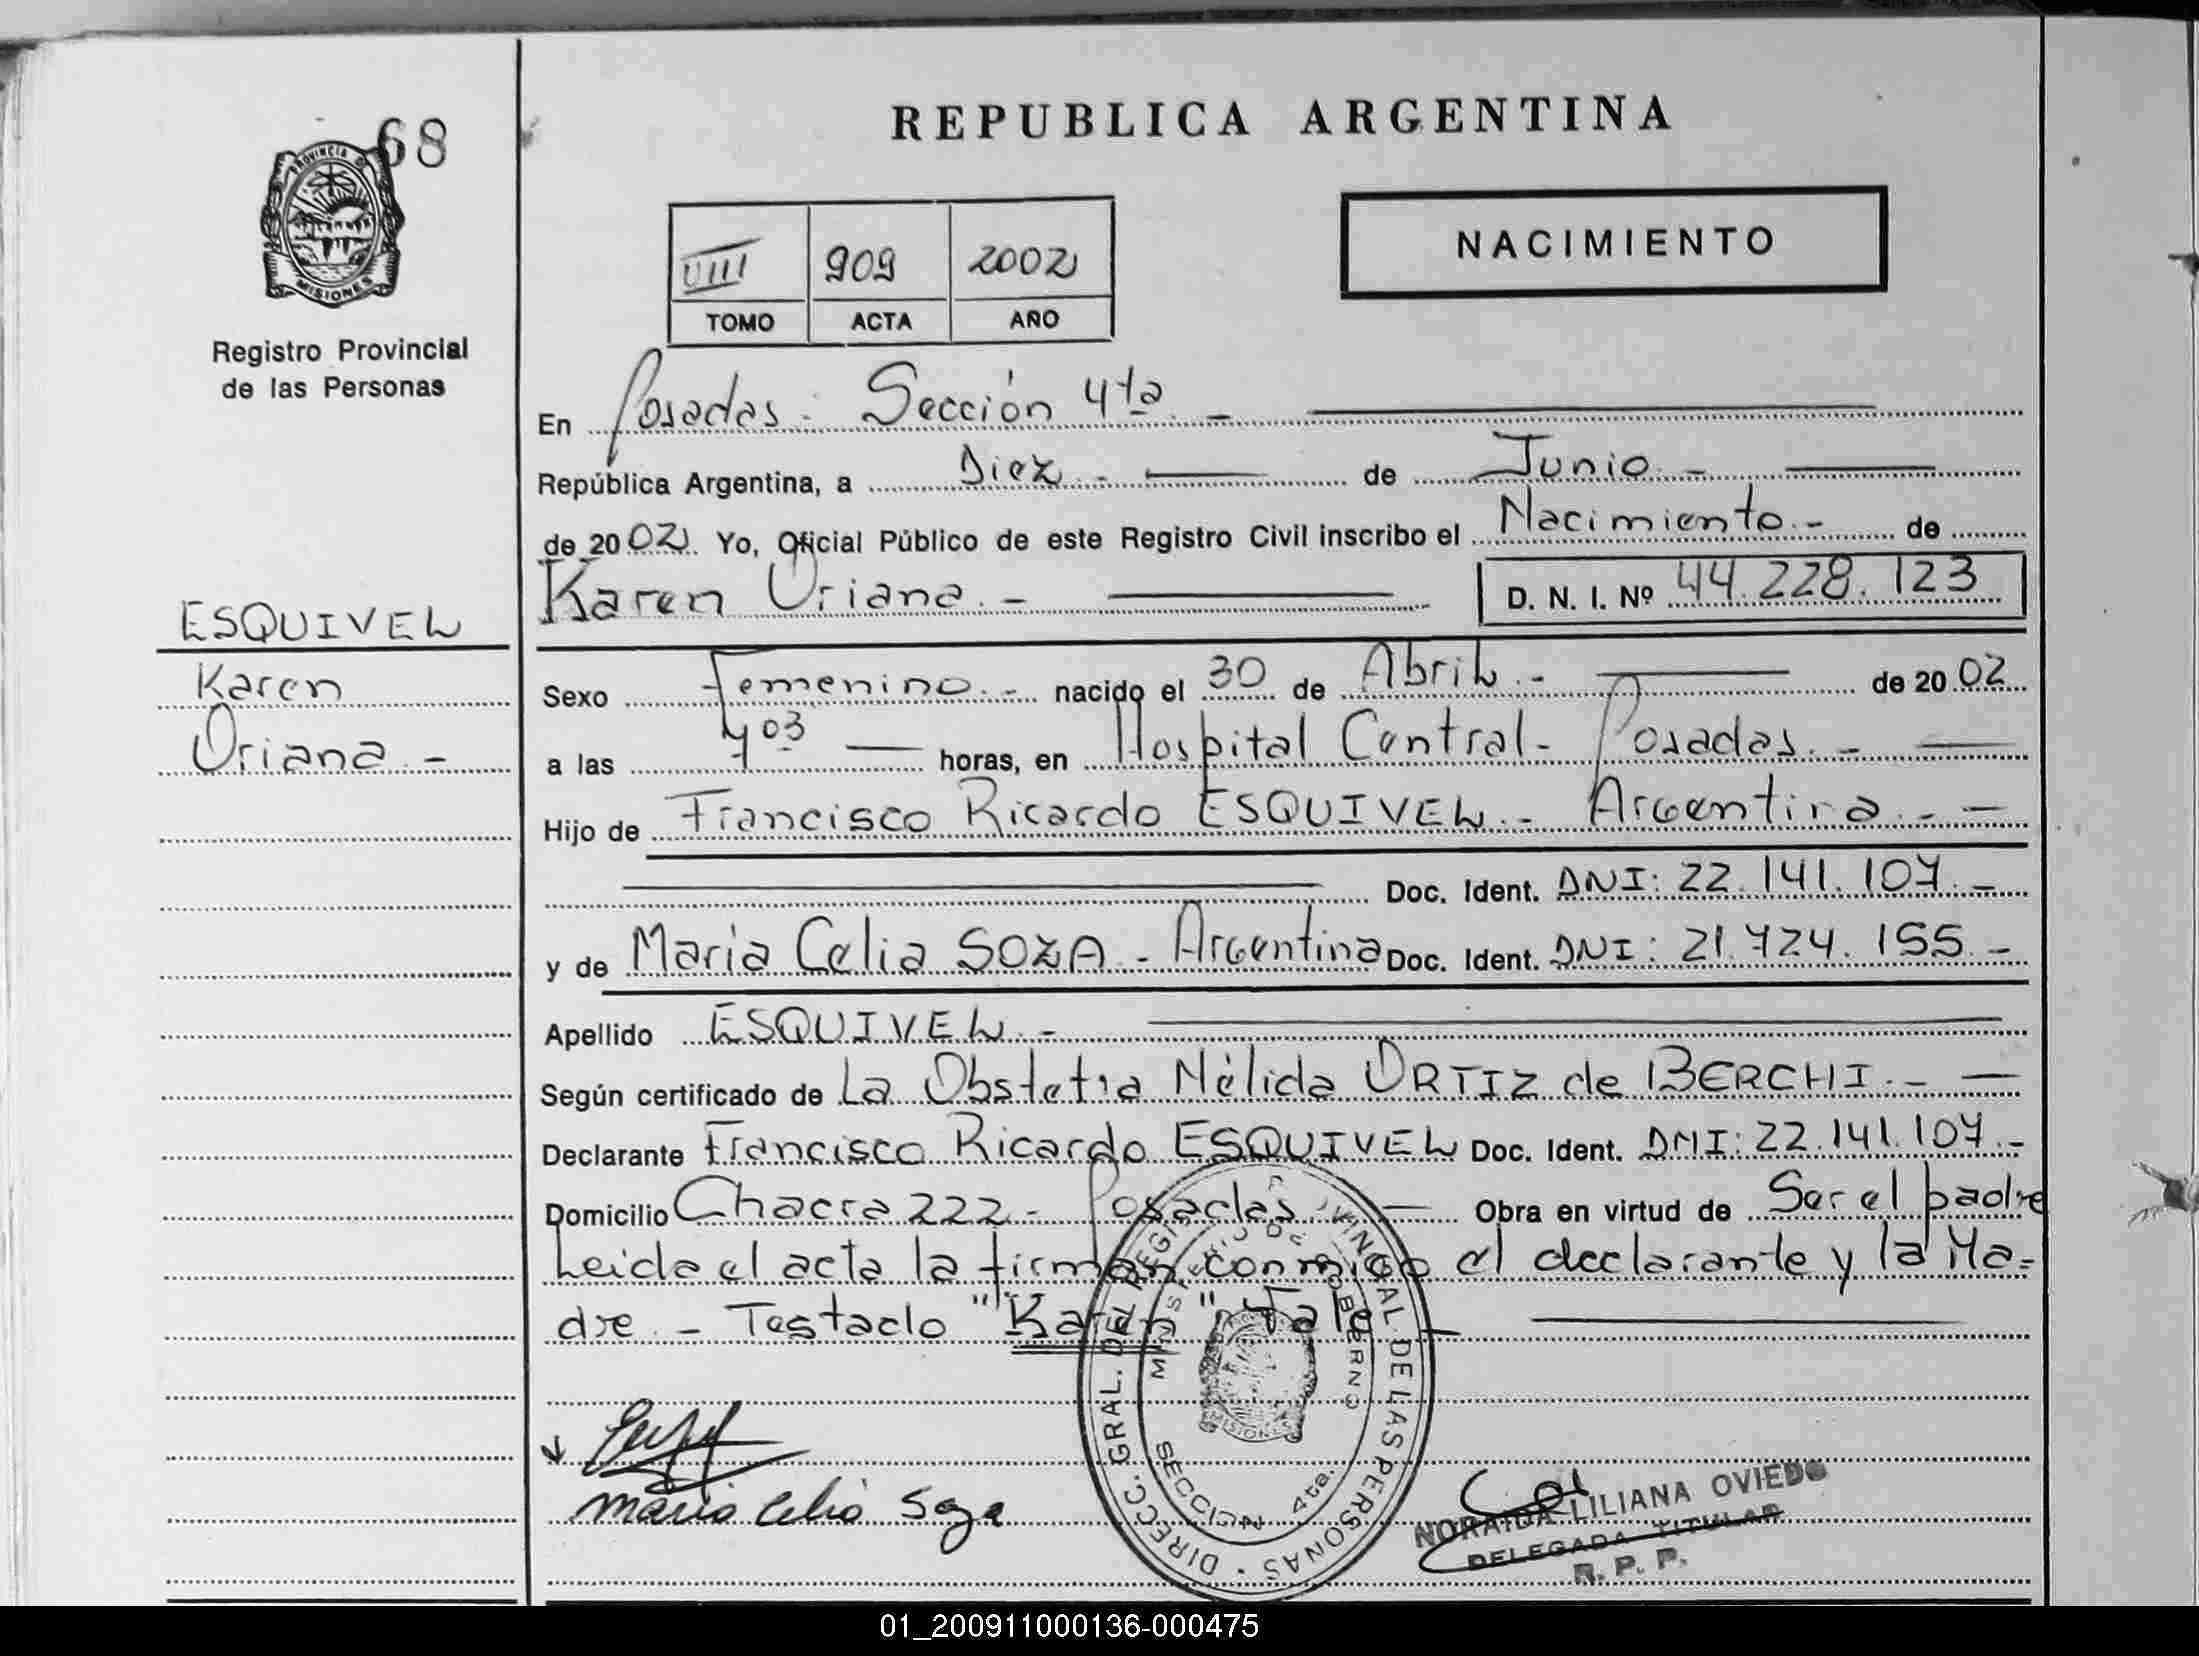 68
PROVINCIA DE
MISIONES
Registro Provincial
de las Personas
ESQUIVEL
Karen
Oriana.-
REPUBLICA ARGENTINA
NACIMIENTO
VIII 909 2002
TOMO ACTA AÑO
En Posadas. Sección 4ta.-
República Argentina, a Diez.- de Junio.-
de 2002. Yo, Oficial Público de este Registro Civil inscribo el Nacimiento.- de
Karen Oriana.- D. N. I. Nº 44.228.123
Sexo Femenino.- nacido el 30 de Abril.- de 2002
a las 7 03 horas, en Hospital Central- Posadas.-
Hijo de Francisco Ricardo ESQUIVEL.- Argentina.-
Doc. Ident. DNI: 22.141.107.-
y de Maria Celia SOZA.- Argentina Doc. Ident. DNI: 21.724.155.-
Apellido ESQUIVEL.-
Según certificado de La Obstetra Nélida ORTIZ de BERCHI.-
Declarante Francisco Ricardo ESQUIVEL Doc. Ident. DNI: 22.141.107.-
Domicilio Chacra 222- Posadas - Obra en virtud de Ser el padre
Leida el acta la firman conmigo el declarante y la Ma-
dre.- Testado "Karen" Vale-
DIRECC. GRAL. DEL REGISTRO PROVINCIAL DE LAS PERSONAS
MINISTERIO DE GOBIERNO
MISIONES
SECCION 4ta.
Maria Celia Soza
NORAIDA LILIANA OVIEDO
DELEGADA TITULAR
R. P. P.
01_200911000136-000475